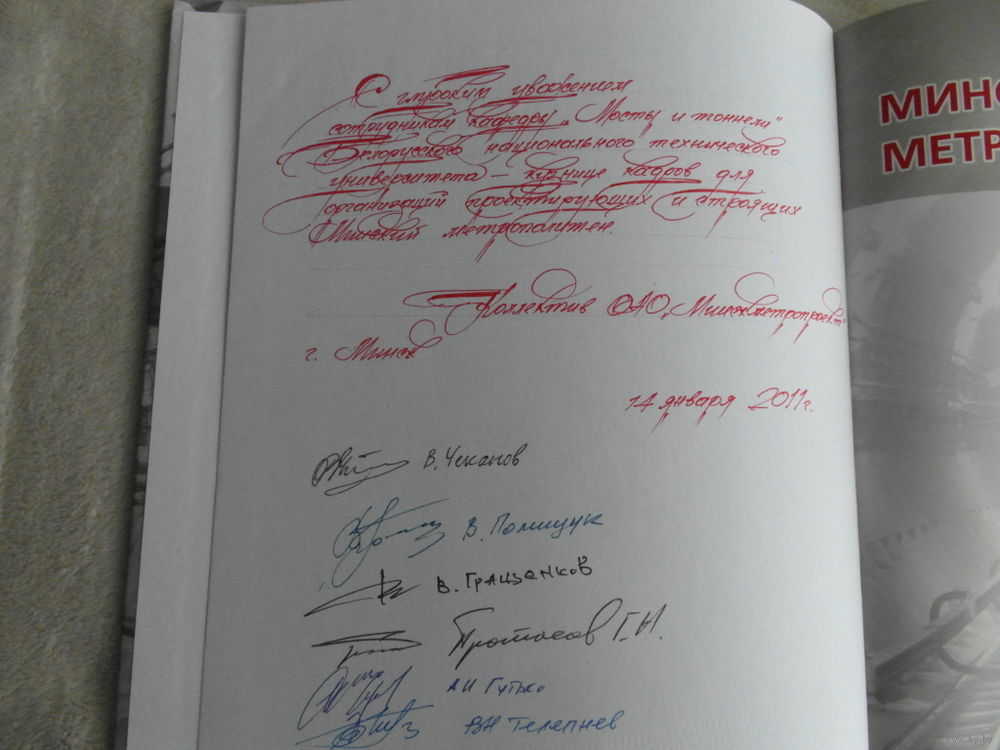 С глубоким уважением
сотрудникам кафедры „Мосты и тоннели"
Белорусского национального технического
университета – кузнице кадров для
организаций проектирующих и строящих
Минский метрополитен.
Коллектив ОАО „Минскметропроект"
г. Минск
14 января 2011 г.
В. Чеканов
В. Полищук
В. Гращенков
Протасов Г.Н.
А Н Гутько
ВН Телепнев
МИНС
МЕТР
www.ay.by